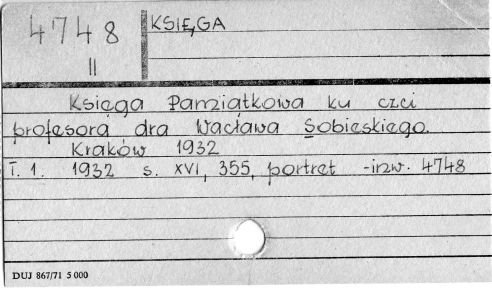 4748
II
KSIĘGA
Księga Pamiątkowa ku czci
profesora dra Wacława Sobieskiego.
Kraków 1932
T. 1. 1932 s. XVI, 355, portret -inw. 4748
DUJ 867/71 5 000